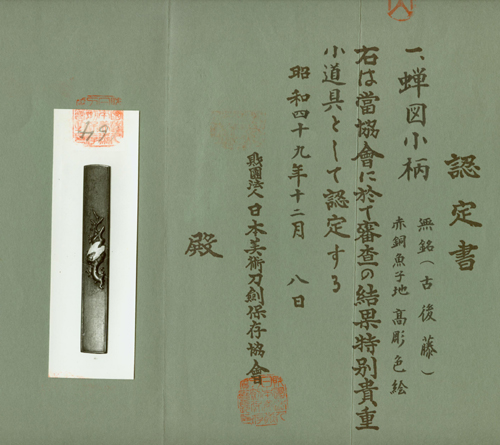 認定書
一、蝉図小柄
無銘（古後藤）
赤銅魚子地 高彫色絵
右は當協會に於て審査の結果特別貴重
小道具として認定する
昭和四十九年十二月 八日
財團法人日本美術刀劍保存協會
殿